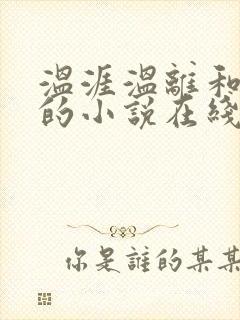 温涯温離和
的小說在綫
你是誰的某某